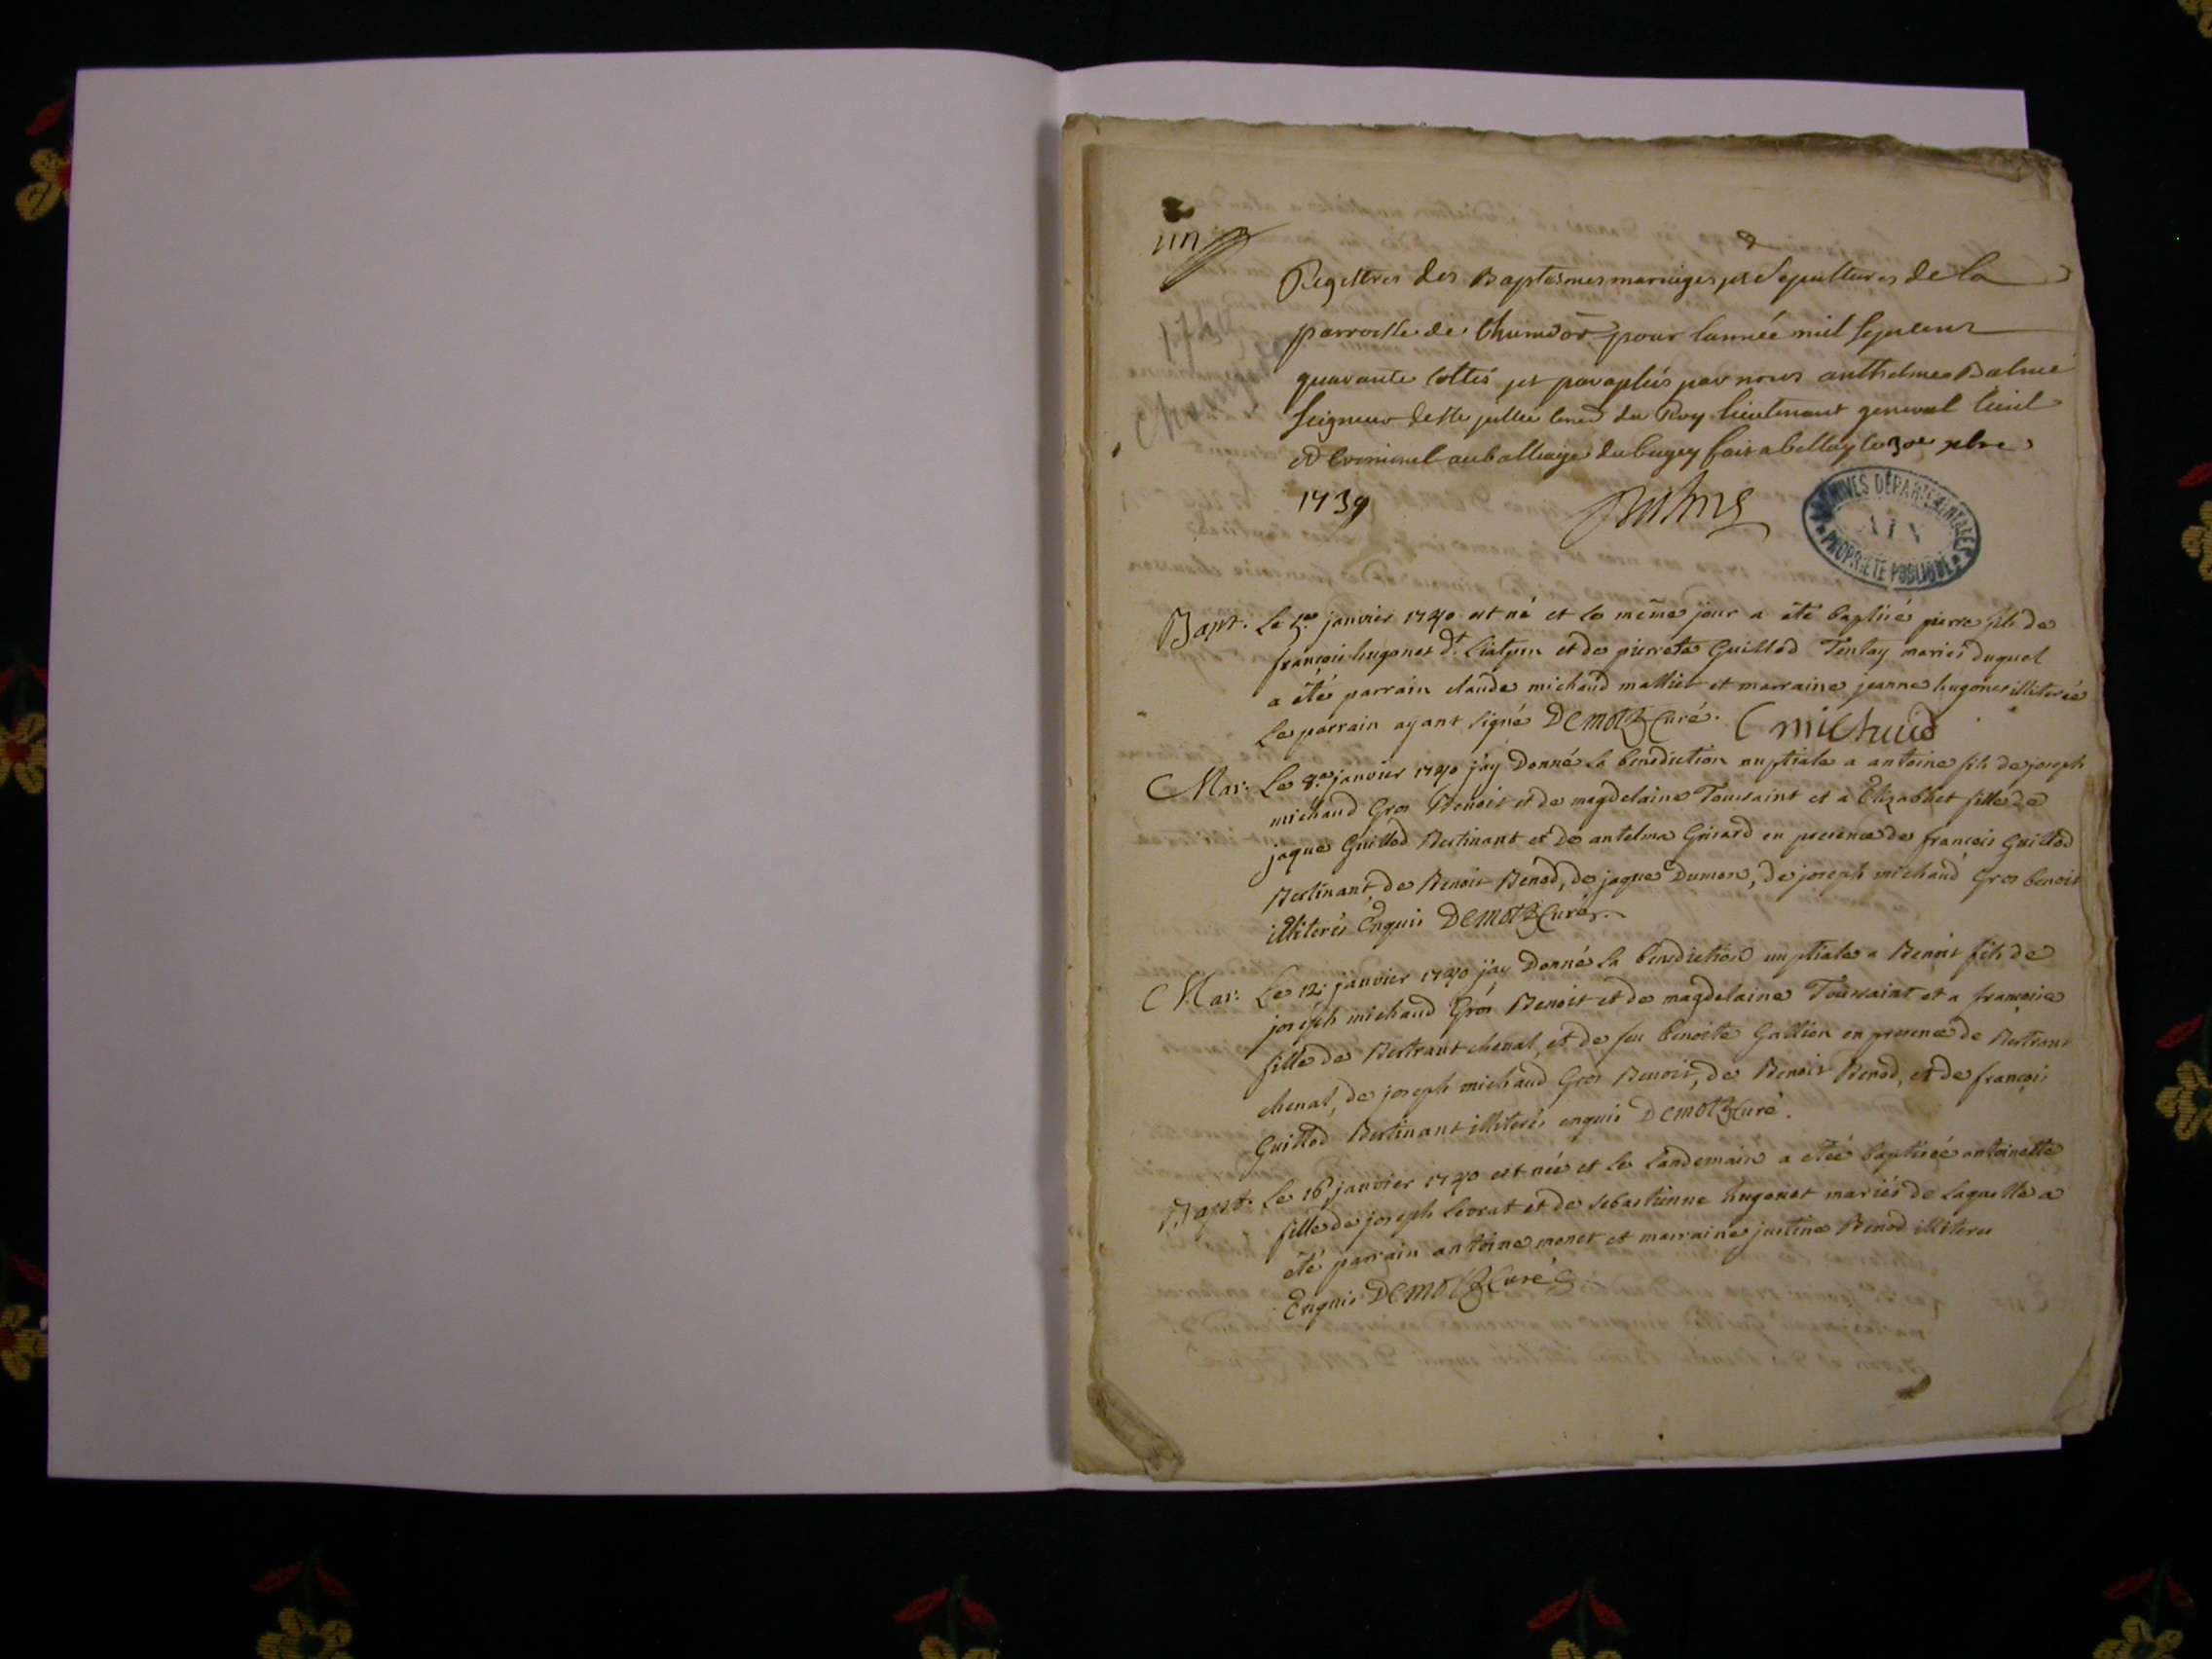 un
Registres des Baptesmes mariages et Sepultures de la
parroisse de pour l'année mil Sept cent
quarante cottés et paraphés par nous anthelme Balme
Seigneur de Ste jullie du Roy lieutenant general Civil
et Criminel au balliage du bugey fait a bellay le 30e xbre
1739
Balme
ARCHIVES DÉPARTEMENTALES
AIN
PROPRIÉTÉ PUBLIQUE
Bapt. Le janvier 1740 est né et le même jour a été baptisé pierre fils de
françois hugonet dt. et de pierrette Guillod Tentay mariés duquel
a été parrain claude michaud mallict et marraine jeanne hugonet illiterée
Le parrain ayant signé Demotz Curé. C michaud
Mar. Le 8e janvier 1740 j'ay Donné la benediction nuptiale a antoine fils de joseph
michaud Gros Benoit et de magdelaine Toussaint et a Elizabhet fille de
jaque Guillod Bertinant et de antelma Grisard en presence de francois Guillod
Bertinant, de Benoit Benod, de jaque Dumon, de joseph michaud Gros benoit
illiterés Enquis Demotz Curé.
Mar. Le 12e janvier 1740 j'ay Donné la benediction nuptiale a Benoit fils de
joseph michaud Gros Benoit et de magdelaine Toussaint et a francoise
fille de Bertrant chenal, et de feu benoite Gallien en presence de Bertrant
chenal, de joseph michaud Gros Benoit, de Benoit Benod, et de françois
Guillod Bertinant illiterés enquis Demotz Curé.
Bapt. Le 16e janvier 1740 est née et le Landemain a etée baptisée antoinette
fille de joseph Levrat et de sebastienne hugonet mariés de laquelle a
été parrain antoine monet et marraine justine Benod illiteres
Enquis Demotz Curé